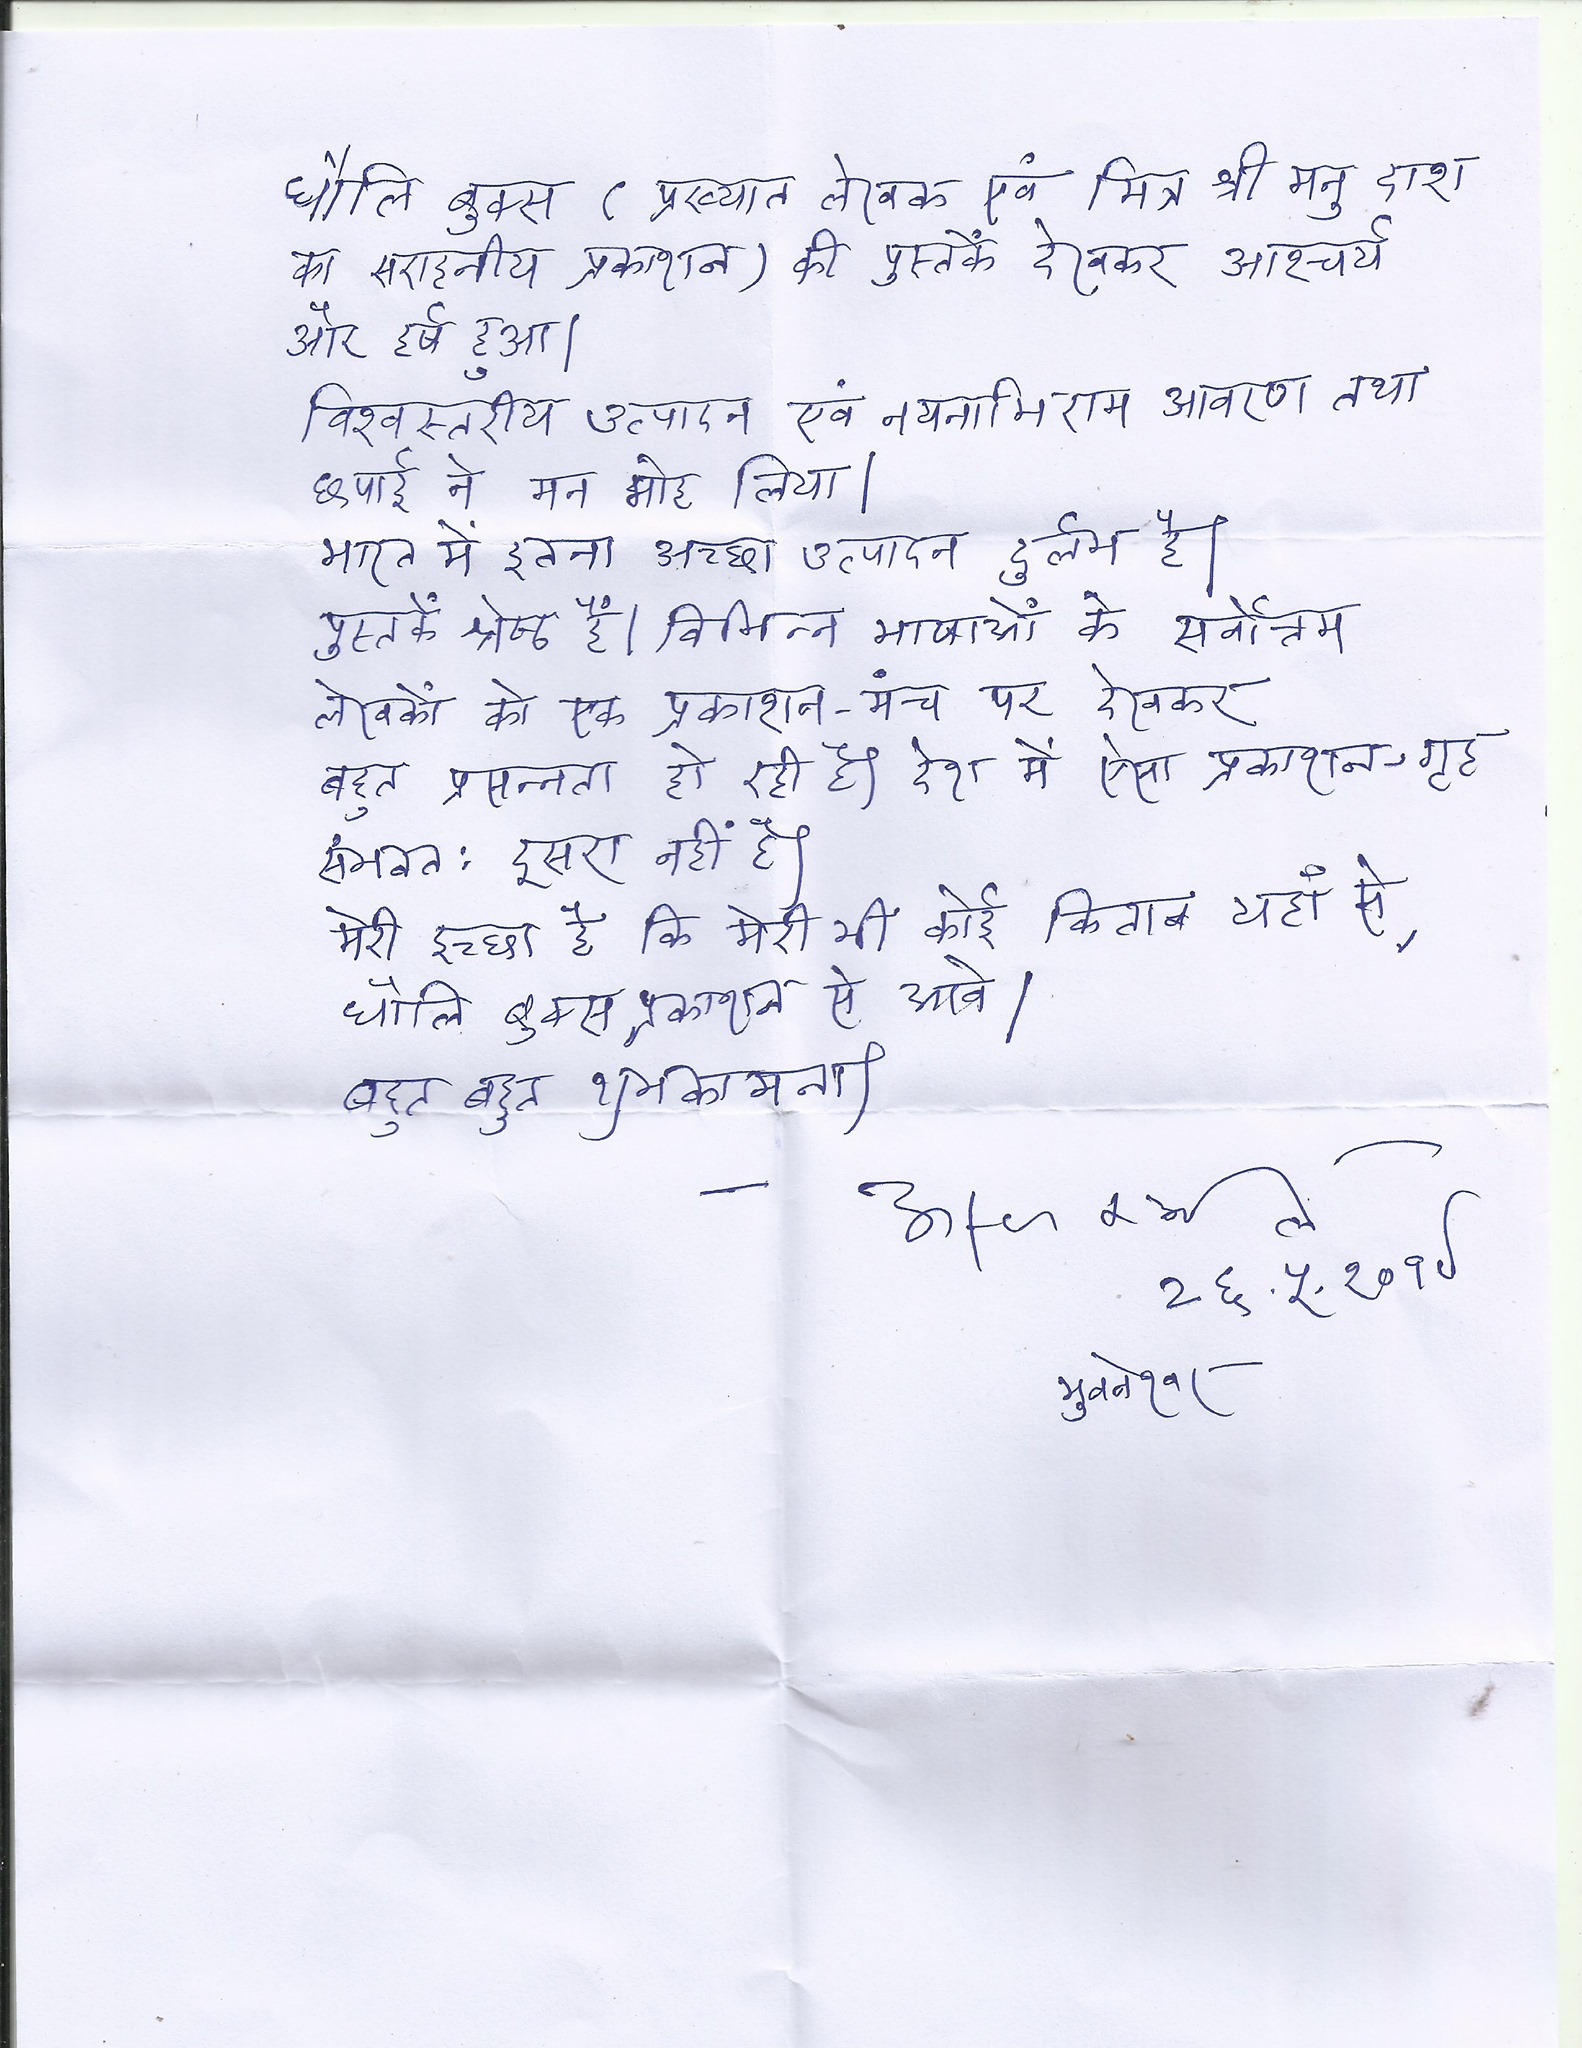 धौलि बुक्स ( प्रख्यात लेखक एवं मित्र श्री मनु दाश
का सराहनीय प्रकाशन) की पुस्तकें देखकर आश्चर्य
और हर्ष हुआ।
विश्वस्तरीय उत्पादन एवं नयनाभिराम आवरण तथा
छपाई ने मन मोह लिया।
भारत में इतना अच्छा उत्पादन दुर्लभ है।
पुस्तकें श्रेष्ठ हैं। विभिन्न भाषाओं के सर्वोत्तम
लेखकों को एक प्रकाशन-मंच पर देखकर
बहुत प्रसन्नता हो रही है। देश में ऐसा प्रकाशन-गृह
संभवत: दूसरा नहीं है।
मेरी इच्छा है कि मेरी भी कोई किताब यहां से,
धौलि बुक्स प्रकाशन से आवे।
बहुत बहुत शुभकामना।
— अरुण कमल
२६.५.२०१८
भुवनेश्वर